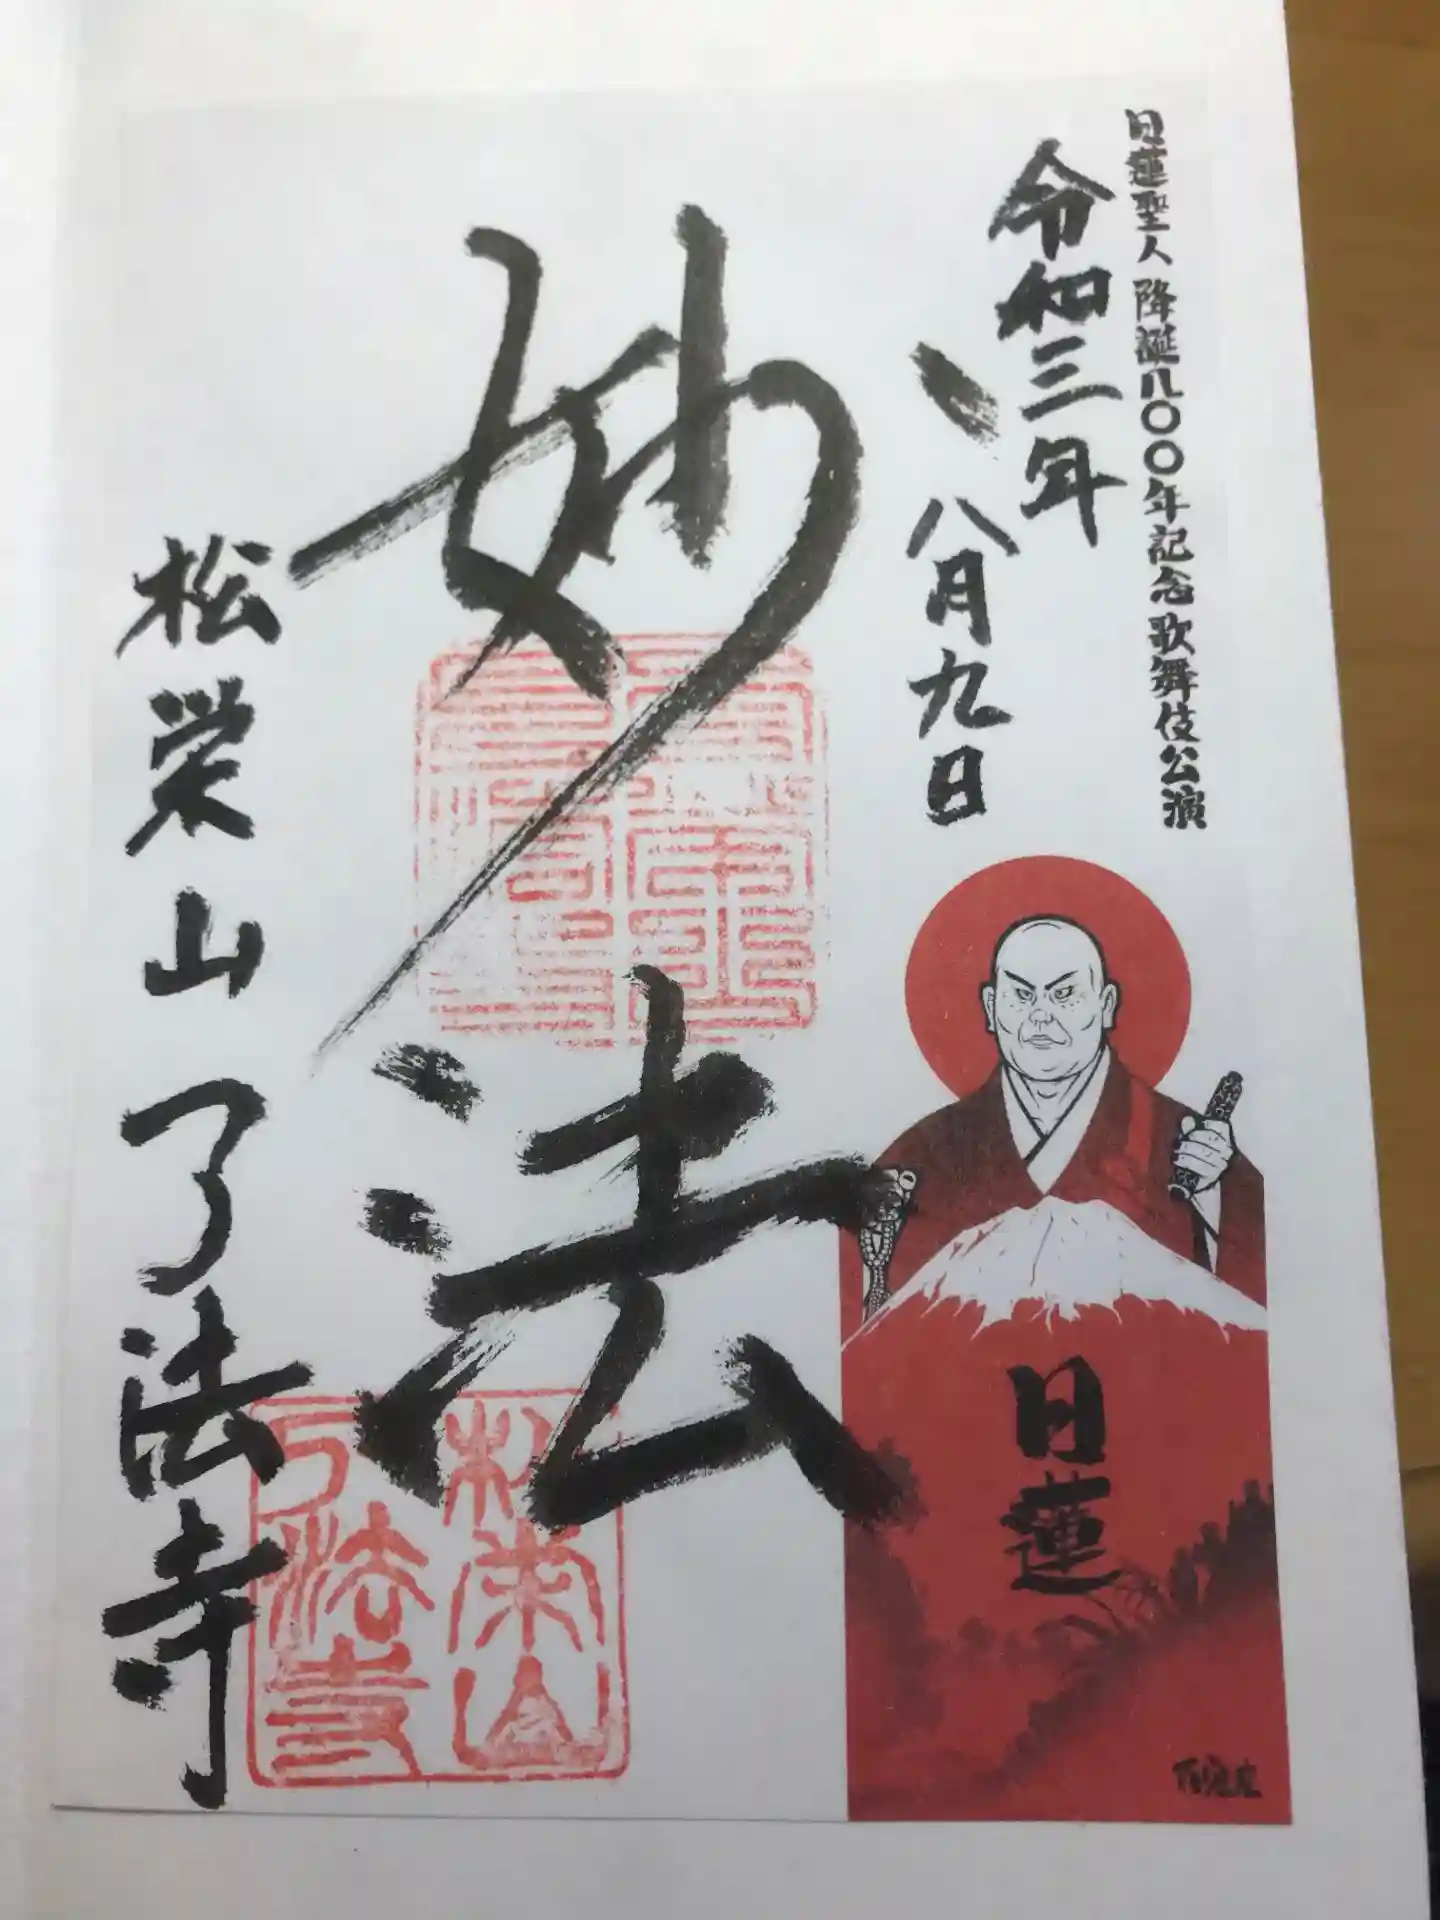 日蓮聖人降誕八〇〇年記念歌舞伎公演
令和三年
八月九日
妙法
松栄山了法寺
松栄山
了法寺
日蓮